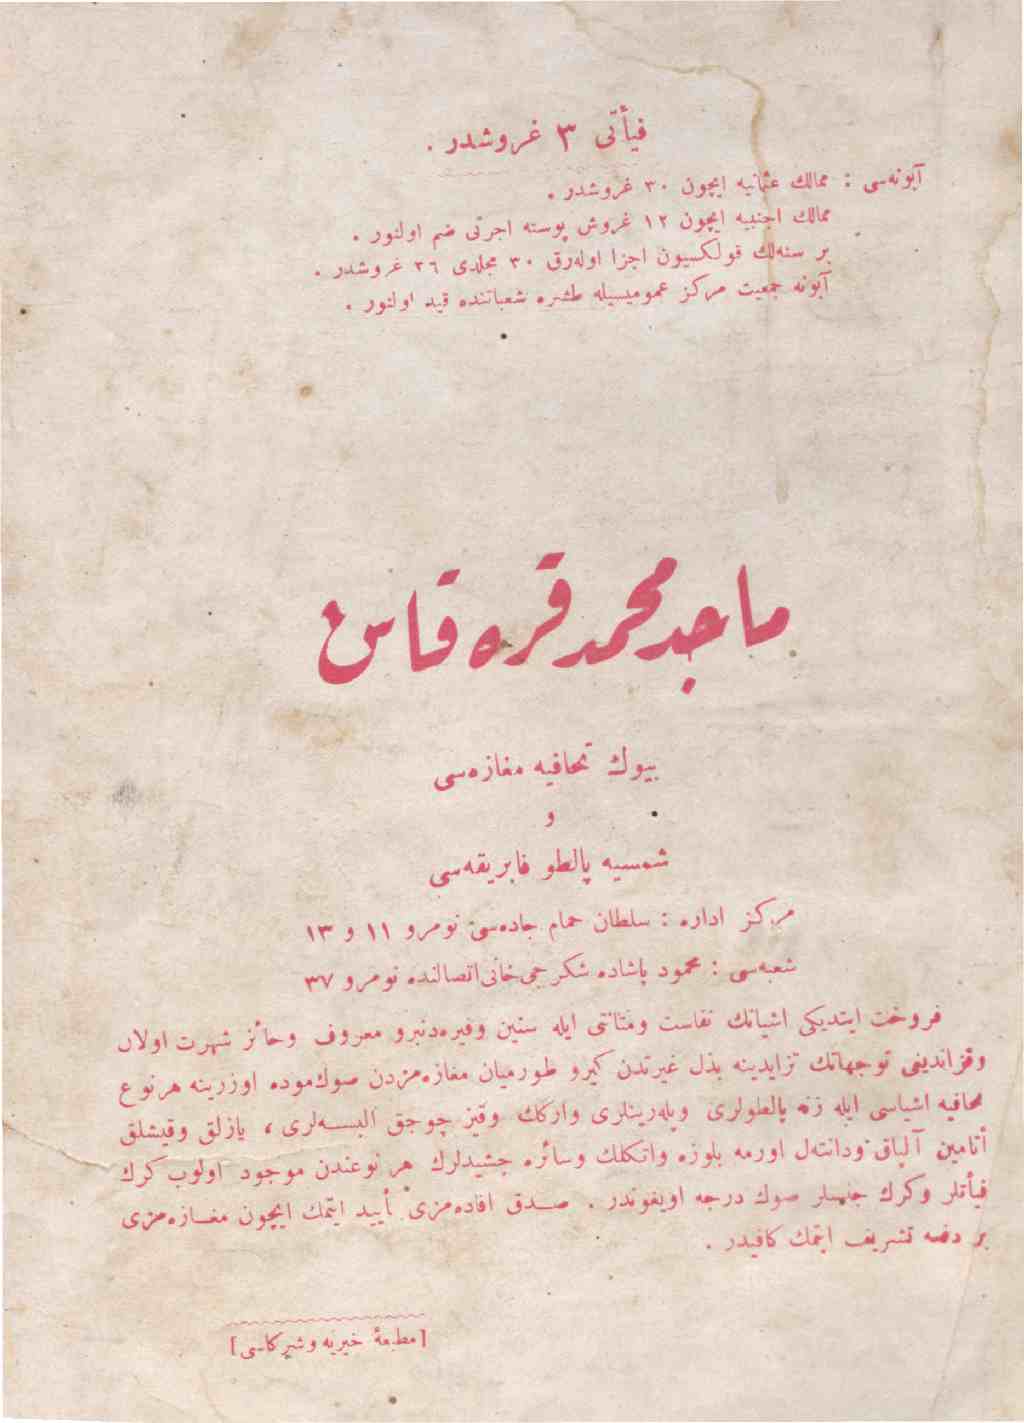 فيأتى ٣ غروشدر .
آبونه‌سى : ممالك عثمانيه ايچون ٣٠ غروشدر .
ممالك اجنبيه ايچون ١٢ غروش پوسته اجرتى ضم اولنور .
بر سنه‌لك قولكسيون اجزا اوله‌رق ٣٠ مجلدى ٣٦ غروشدر .
آبونه جمعيت مركز عموميسيله طشره شعباتنده قيد اولنور .
ماجد محمد قره قاش
بيوك تحافيه مغازه‌سى
و
شمسيه پالطو فابريقه‌سى
مركز اداره : سلطان حمام جاده‌سى نومرو ١١ و ١٣
شعبه‌سى : محمود پاشاده شكرجى خانى اتصالنده نومرو ٣٧
فروخت ايتديكى اشيانك نفاست ومتانتى ايله سنين وفيره‌دنبرو معروف وحائز شهرت اولان
وقزانديغى توجهاتك تزايدينه بذل غيرتدن كيرو طورميان مغازه‌مزدن صوك موده اوزرينه هرنوع
تحافيه اشياسى ايله زنه پالطولرى وپله‌رينلرى واركك وقيز چوجق البسه‌لرى ، يازلق وقيشلق
أتامين آلپاق ودانته‌ل اورمه بلوزه واتكلك وسائره چشيدلرك هر نوعندن موجود اولوب كرك
فيأتلر وكرك جنسلر صوك درجه اويغوندر . صدق افاده‌مزى تأييد ايتمك ايچون مغازه‌مزى
بر دفعه تشريف ايتمك كافيدر .
[مطبعهٔ خيريه وشركاسى]